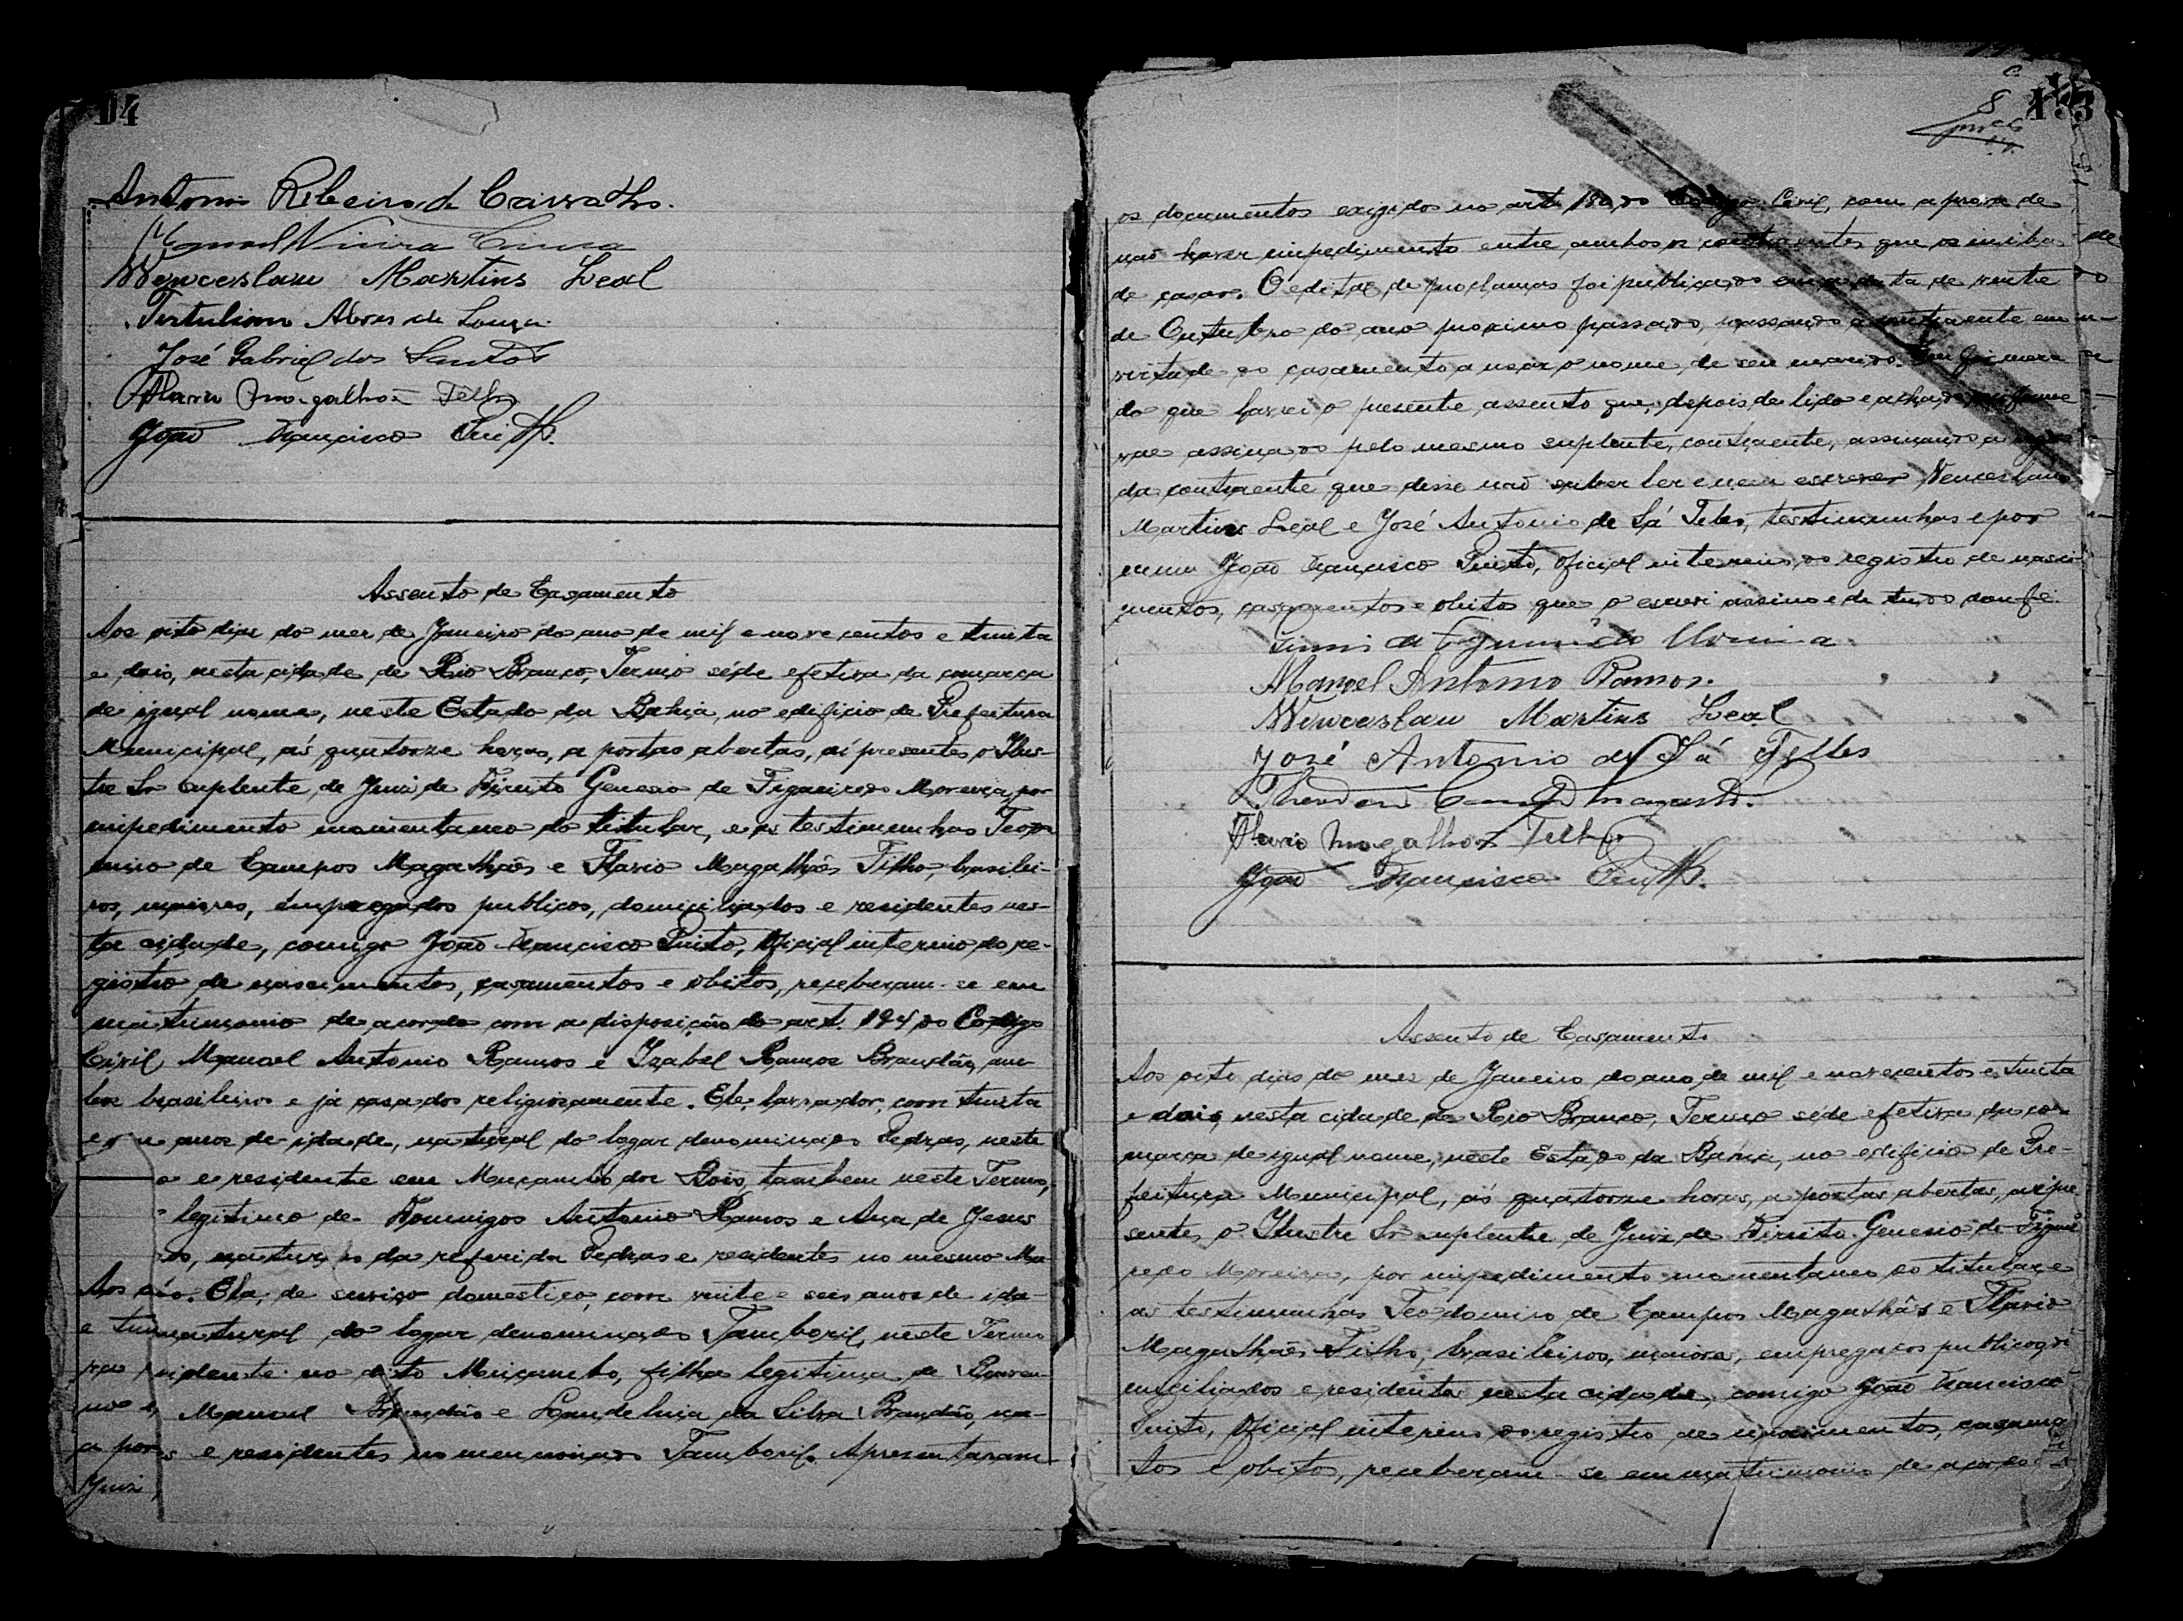 04
Antonio Ribeiro de Carvalho.
Manoel Vieira
Wenceslau Martins Leal
Tertuliano Alves de Souza
José Gabriel dos Santos
Flavio Magalhães Filho
João Francisco Pinto.
Assento de Casamento
Aos oito dias do mez de Janeiro do ano de mil e novecentos e trinta
e dois, nesta cidade de Rio Branco, Termo séde efetiva da comarca
de igual nome, neste Estado da Bahia, no edificio de Prefeitura
Municipal, ás quatorze horas, a portas abertas, aí presentes o Ilus-
tre Sr suplente de Juiz de Direito Genesio de Figueiredo Moreira, por
impedimento momentaneo do titular, e as testimunhas Teodo
miro de Campos Magalhães e Flavio Magalhães Filho, brasilei-
ros, maiores, empregados publicos, domiciliados e residentes nes-
ta cidade, comigo João Francisco Pinto, Oficial interino do re-
gistro de nascimentos, casamentos e obitos, receberam-se em
matrimonio de acordo com a disposição do art. 194 do Codigo
Civil, Manoel Antonio Ramos e Izabel Ramos Brandão, am-
bos brasileiros e já casados religiosamente. Ele, lavrador, com trinta
e anos de idade, natural do logar denominado Pedras, neste
o e residente em Mucambo dos Bois, tambem neste Termo,
legitimo de Domingos Antonio Ramos e Ana de Jesus
os, naturais da referida Pedras e residentes no mesmo Mu
Aos Ela, de serviço domestico, com vinte e seis anos de ida-
e natural do logar denominado Tamboril, neste Termo
sidente no dito Mucambo, filha legitima de
Manoel Brandão e Laudelina da Silva Brandão, na-
a por s e residentes no mencionado Tamboril. Apresentaram
Juiz,
8
os documentos exigidos no art. 180 do Codigo Civil, com a prova de
não haver impedimento entre ambos os contraentes que os iniba
de casar. O edital de proclamas foi publicado em data de vinte
de Outubro do ano proximo passado, passando a contraente em
virtude do casamento a usar o nome de seu marido. Em firmeza
do que lavrei o presente assento que, depois de lido e achado conforme
vae assinado pelo mesmo suplente, contraente, assinando a rogo
da contraente que disse não saber ler e nem escrever Wenceslau
Martins Leal e José Antonio de Sá Teles, testimunhas e por
mim João Francisco Pinto, Oficial interino do registro de nasci-
mentos, casamentos e obitos que o escrevi assino e de tudo dou fé.
Genesio de Figueirêdo Moreira
Manoel Antonio Ramos.
Wenceslau Martins Leal
José Antonio de Sá Telles
Flavio Magalhães Filho
João Francisco Pinto.
Assento de Casamento
Aos oito dias do mez de Janeiro do ano de mil e novecentos e trinta
e dois, nesta cidade de Rio Branco, Termo séde efetiva da co-
marca de igual nome, neste Estado da Bahia, no edificio de Pre-
feitura Municipal, ás quatorze horas, a portas abertas, aí pre
sentes o Ilustre Sr suplente de Juiz de Direito Genesio de Figuei
redo Moreira, por impedimento momentaneo do titular, e
as testimunhas Teodomiro de Campos Magalhães e Flavio
Magalhães Filho, brasileiros, maiores, empregados publicos, do
miciliados e residentes nesta cidade, comigo João Francisco
Pinto, Oficial interino do registro de nascimentos, casamen
tos e obitos, receberam-se em matrimonio de acordo